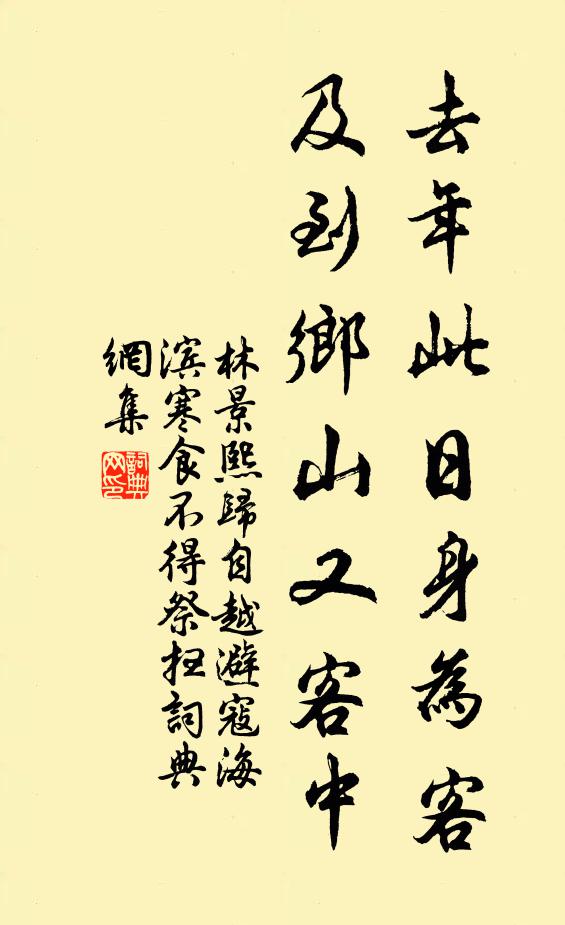 去年此日身為客
及到鄉山又客中
林景熙歸自越避寇海
滨寒食不得祭扫詞典
網集
詞典網印